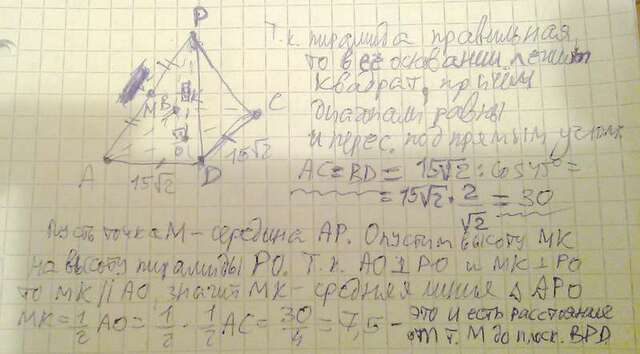 P
Т.к. пирамида правильная,
то в её основании лежит
квадрат, причём
диагонали равны
и перес. под прямым углом
M
B
K
C
A
D
15√2
15√2
AC=BD= 15√2 : cos 45° =
= 15√2 · 2/√2 = 30
Пусть точка M – середина AP. Опустим высоту MK
на высоту пирамиды PO. Т.к. AO⊥PO и MK⊥PO
то MK||AO, значит MK – средняя линия △APO
MK = 1/2 AO = 1/2 · 1/2 AC = 30/4 = 7,5 – это и есть расстояние
от т. M до плоск. BPD.